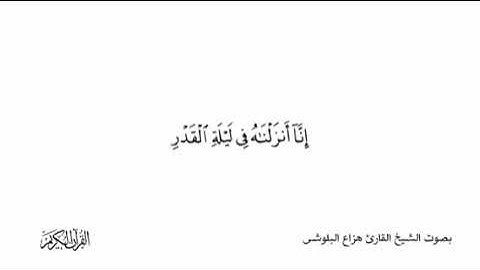 إِنَّآ أَنزَلۡنَٰهُ فِي لَيۡلَةِ ٱلۡقَدۡرِ
بصوت الشيخ القارئ هزاع البلوشي
القرآن الكريم